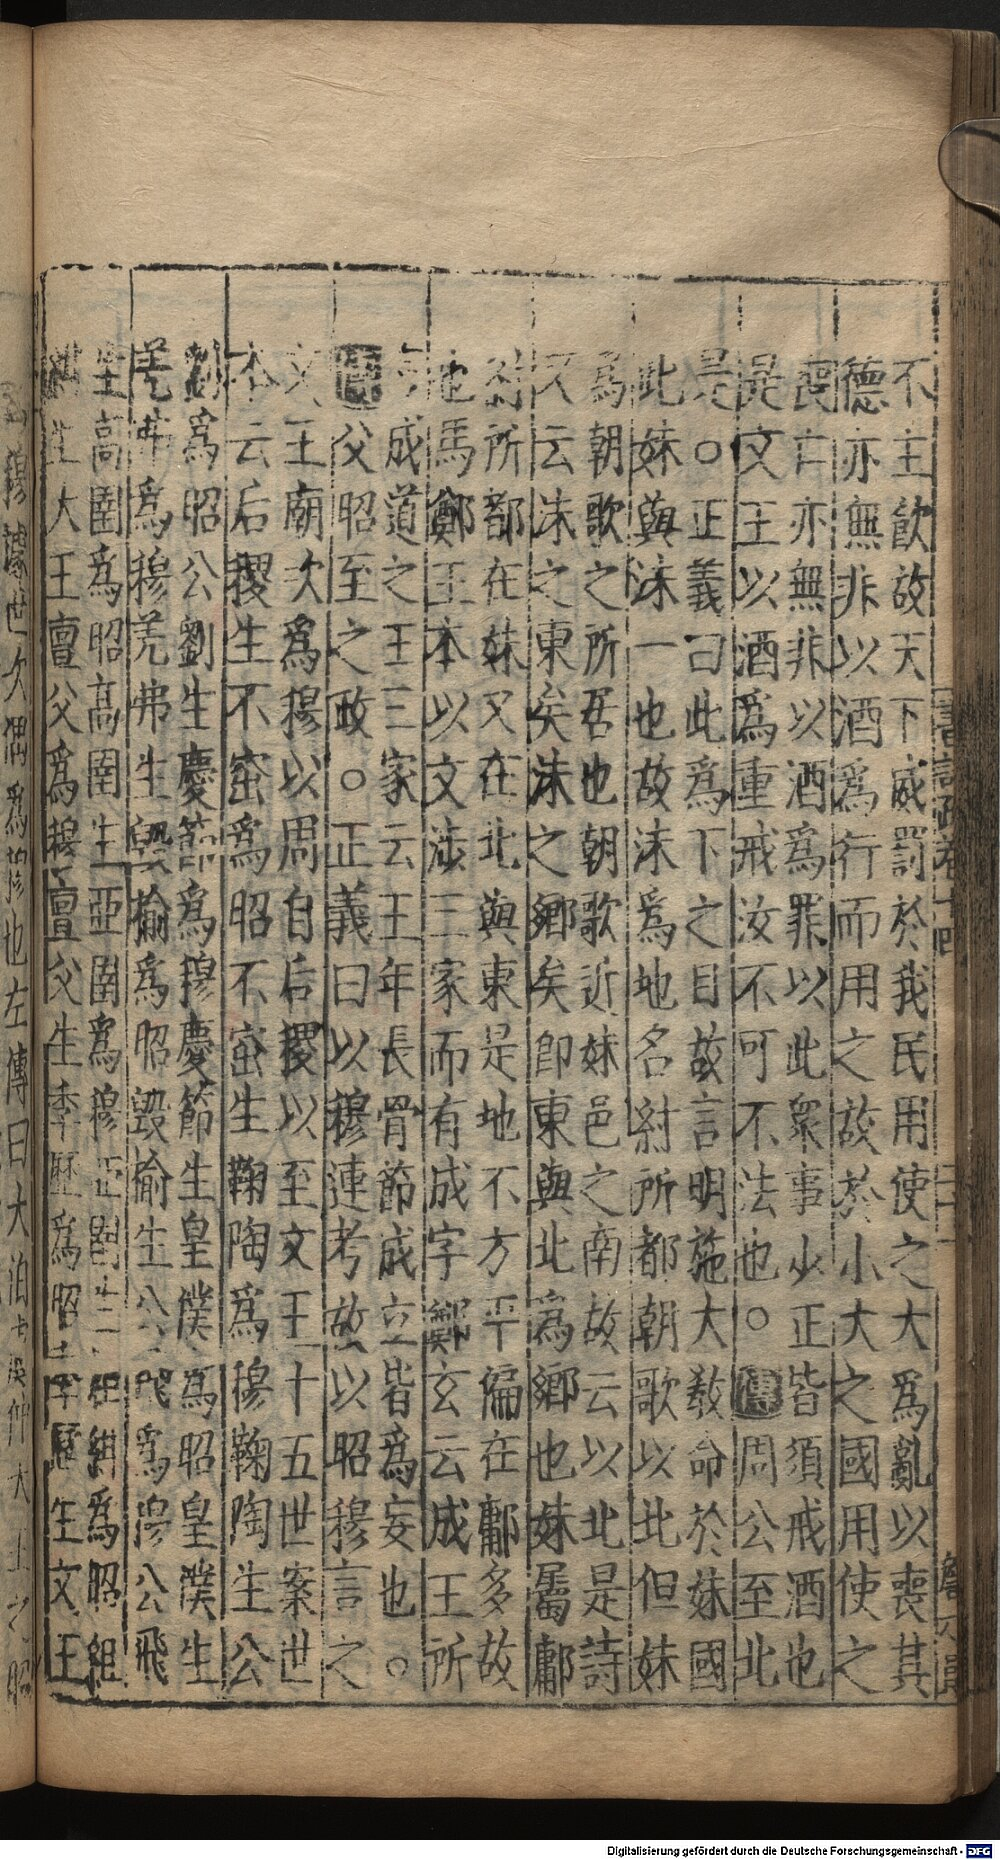 不主飲故天下威罰於我民用使之大爲亂以喪其
德亦無非以酒爲行而用之故於小大之國用使之
喪亡亦無非以酒爲罪以此衆事少正皆須戒酒也
是文王以酒爲重戒汝不可不法也○傳周公至北
是○正義曰此爲下之目故言明施大教命於妹國
此妹與沬一也故沬爲地名紂所都朝歌以北但妹
爲朝歌之所居也朝歌近妹邑之南故云以北是詩
又云沬之東矣沬之鄉矣卽東與北爲鄉也妹屬鄘
紂所都在妹又在北與東是地不方平偏在鄘多故
也馬鄭王本以文涉三家而有成字鄭玄云成王所
言成道之王三家云王年長骨節成立皆爲妄也○
傳父昭至之政○正義曰以穆連考故以昭穆言之
文王廟次爲穆以周自后稷以至文王十五世案世
本云后稷生不窋爲昭不窋生鞠陶爲穆鞠陶生公
劉爲昭公劉生慶節爲穆慶節生皇僕爲昭皇僕生
羌弗爲穆羌弗生毀榆爲昭毀榆生公飛爲穆公飛
生高圉爲昭高圉生亞圉爲穆亞圉生組紺爲昭組
紺生大王亶父爲穆亶父生季歷爲昭季歷生文王
爲穆據世次偶爲 也左傳曰大泊 仲大王之昭
書註疏卷十四